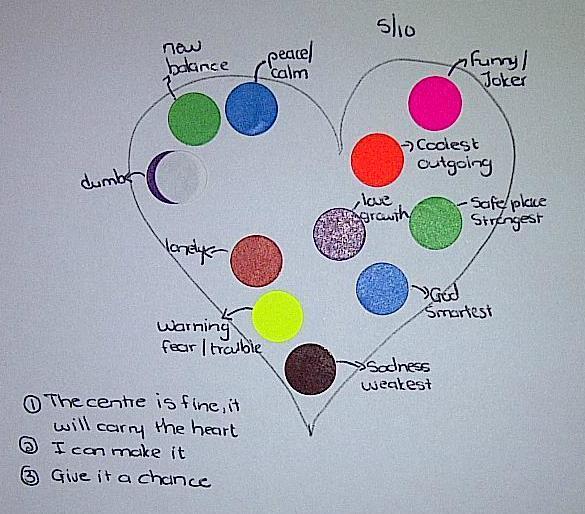 5/10
new
balance
peace/
calm
Funny/
Joker
Coolest
outgoing
dumb
love
growth
Safe place
Strongest
lonely
God
Smartest
Warning
fear/trouble
Sadness
weakest
① The centre is fine, it
will carry the heart
② I can make it
③ Give it a chance